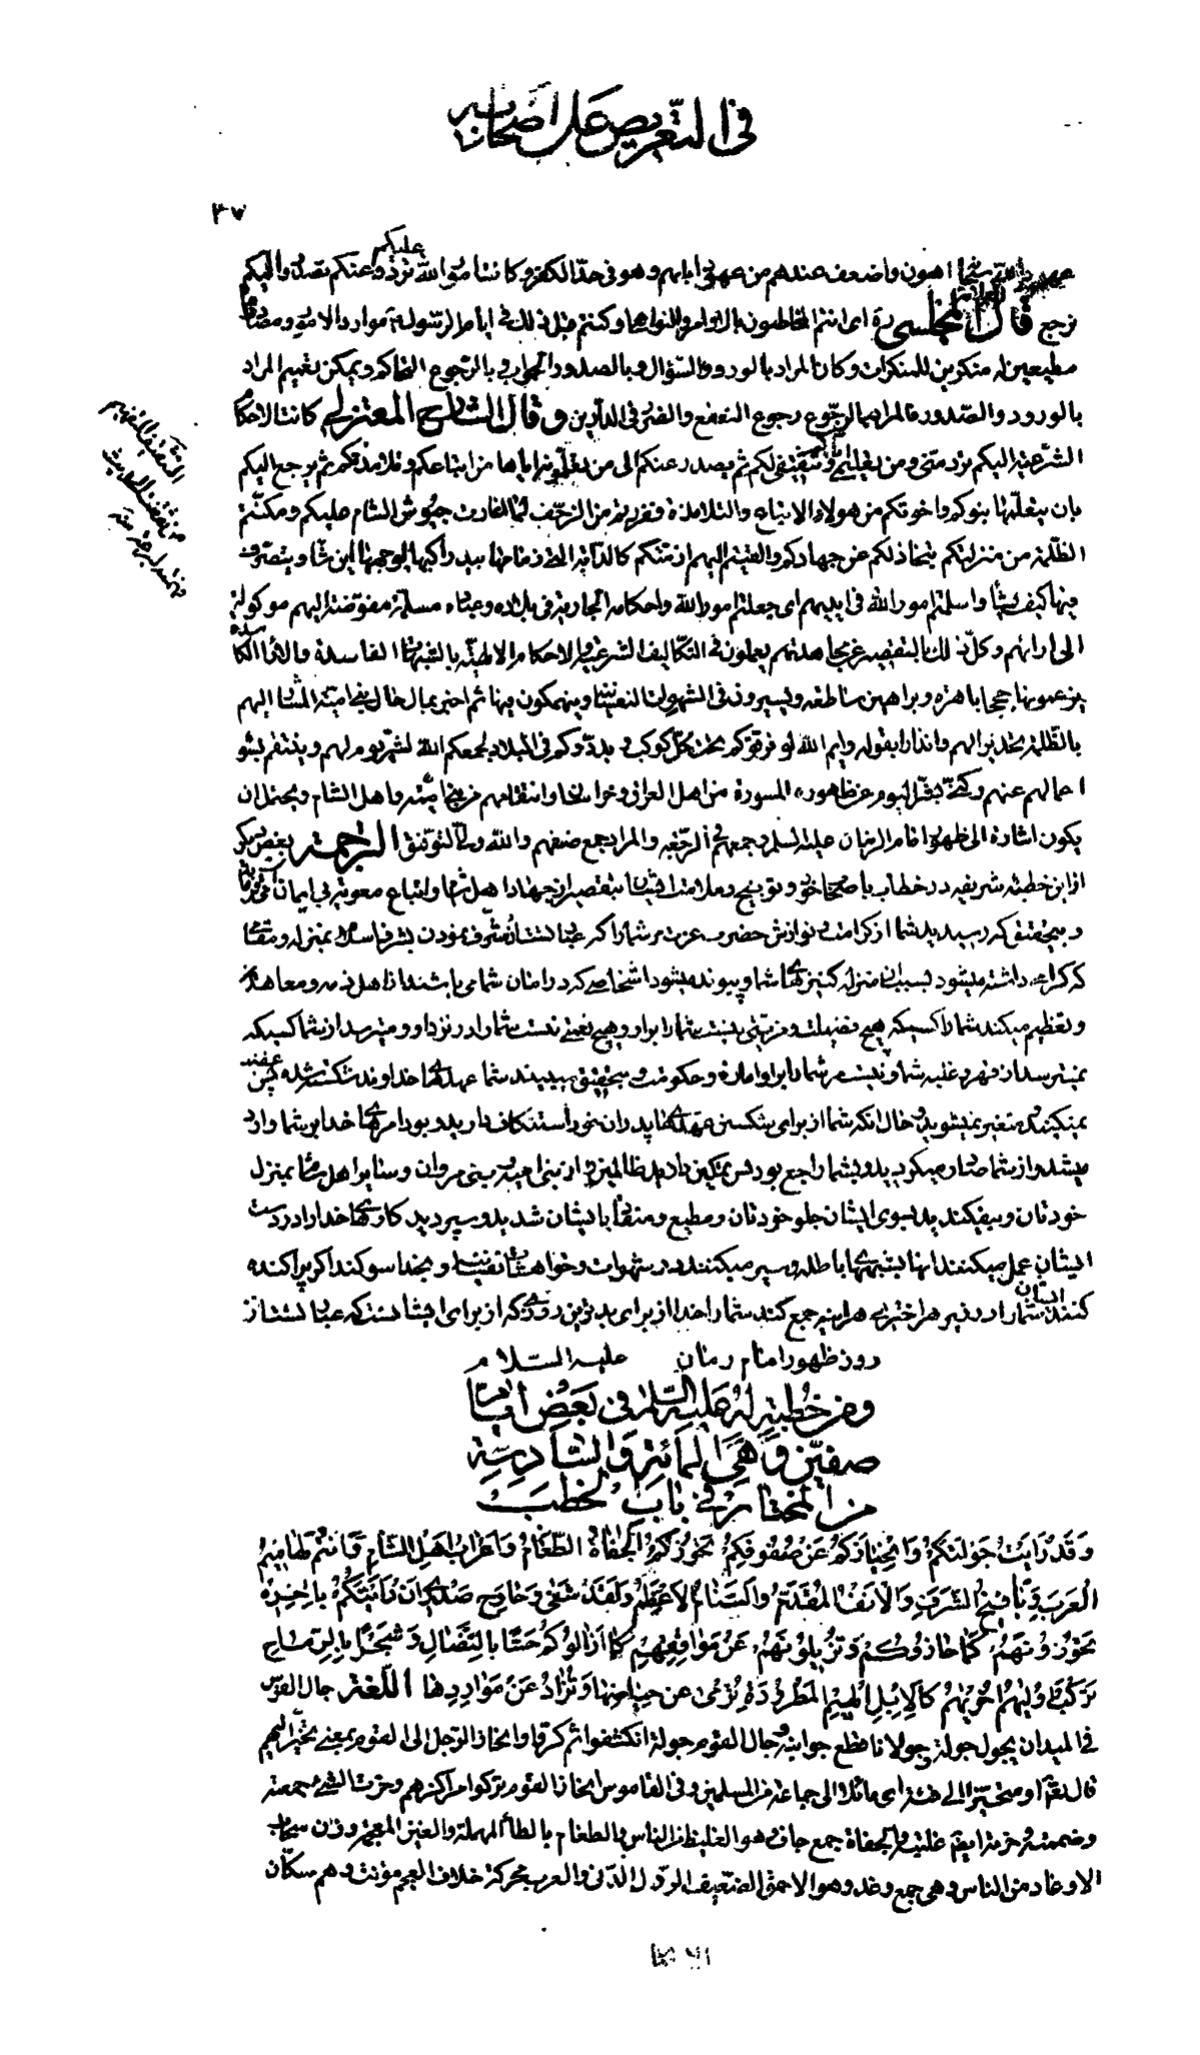 في التعريض على أصحابه
٣٧
عليكم
عهود الله سبحانه اهون واضعف عندهم من عهود آبائهم وهو في حدّ الكفر وكانت امور الله ترد عليكم وعنكم تصدر واليكم
ترجع قال المجلسي ره اى انتم المخاطبون بالاوامر والنواهى وكنتم قبل ذلك في ايام الرسول موارد الامور ومصادرها
مطيعين له منكرين للمنكرات وكان المراد بالورود السؤال وبالصدور الجواب وبالرجوع التحاكم ويمكن تعميم المراد
بالورود والصدور فالمراد بالرجوع رجوع النفع والضر في الدارين وقال الشارح المعتزلي كانت الاحكام
الشرعية اليكم ترد منى ومن تعليمى وتثقيفى لكم ثم يصدر عنكم الى من تعلّمونه اياها من اتباعكم وتلامذتكم ثم يرجع اليكم
بان يتعلّمها بنوكم واخوتكم من هولاء الاتباع والتلامذة ففررتم من الزحف لما اغارت جيوش الشام عليكم ومكنتم
الظلمة من منزلتكم بتخاذلكم عن جهادكم والقيتم اليهم ازمتكم كالدابة التى زمامها بيد راكبها يوجهها اين شاء ويتصرف
فيها كيف يشاء واسلمتم امور الله في ايديهم اى جعلتم امور الله واحكامه الجارية في بلاده وعباده مسلمة مفوضة اليهم موكولة
الى ارائهم وكل ذلك بالتقصير عن مجاهدتهم يعملون في التكاليف الشرعية والاحكام الالهيّة بالشبهات الفاسدة والآراء الكاسدة
يزعمونها حججا باهرة وبراهين ساطعة ويسيرون في الشهوات النفسانية وينهمكون فيها ثم اخبر بمآل حال بنى امية المشار اليهم
بالظلمة تحذيرا لهم وانذارا بقوله وايم الله لو فرقوكم تحت كل كوكب وبددوكم في البلاد لجمعكم الله لشر يوم لهم وينتقم بسوء
اعمالهم عنهم وكنى بشر اليوم عن ظهور المسودة من اهل العراق وخراسان وانتقامهم من بنى اميّة واهل الشام ويحتمل ان
يكون اشارة الى ظهور امام الزمان عليه السلم وجمعهم في الرجعة والمراد جمع صنفهم والله ولىّ التوفيق الترجمة بعض ديگر
از اين خطبه شريفه در خطاب باصحاب خود وتوبيخ وملامت ايشان بتقصير از جهاد اهل شام واتباع معويه بى ايمان
وبتحقيق كه رسيديد شما از كرامت ونوازش حضرت عزت مر شما را كه عبارتست از مشرف نمودن بشرف اسلام بمنزله ومقامى
كه گرامى داشته ميشود بسبب ان منزله كنيزهاى شما وپيوند ميشود اشخاصى كه در امان شما مى باشند از اهل ذمه ومعاهده
وتعظيم ميكند شما را كسيكه هيچ فضيلت ومزيتى نسبت شما را بر او وهيچ نعمتى نيست شما را در نزد او ومى ترسد از شما كسيكه
نميترسد از قهر وغلبه شما ونيست مر شما را بر او اماره وحكومت وبتحقيق ببينيد شما عهدهاى خداوند شكسته شده پس غضب
نميكنيد ومتغير نميشويد وحال انكه شما از براى شكستن عهدهاى پدران خود استنكاف داريد وبود امرهاى خدا بر شما وارد
ميشد واز شما صادر ميگرديد وبشما راجع بود پس تمكين داديد ظالمين را از بنى اميه وبنى مروان وساير اهل شام بمنزل
خودتان وبيفكنديد بسوى ايشان جلو خودتان ومطيع ومنقاد بايشان شديد وسپرديد كارهاى خدا را در دست
ايشان عمل ميكنند انها بشبههاى باطله وسير ميكنند در شهوات وخواهشات نفسانيت وبخدا سوگند اگر پراكنده
كنند ايشان شما را در زير هر اخترى هر اينه جمع كند شما را خدا از براى بدترين روزى كه از براى ايشانست كه عبارتست از
روز ظهور امام زمان عليه السلام
ومن خطبة له عليه السلم في بعض ايام
صفين وهي المائة والسادسة
من المختار في باب الخطب
وَقَد رَاَيتُ جَولَتَكُم وَانحِيازَكُم عَن صُفُوفِكُم تَحُوزُكُمُ الجُفاةُ الطَّغامُ وَاَعرابُ اَهلِ الشّامِ وَاَنتُم لَهامِيمُ
العَرَبِ وَيَافِيخُ الشَّرَفِ وَالاَنفُ المُقَدَّمُ وَالسَّنامُ الاَعظَمُ وَلَقَد شَفى وَحاوِحَ صَدرِى اَن رَاَيتُكُم بِاَخِرَةٍ
تَحُوزُونَهُم كَما حازُوكُم وَتُزِيلُونَهُم عَن مَواقِفِهِم كَما اَزالُوكُم حَسّا بِالنِّضالِ وَشَجرًا بِالرِّماحِ
تَركَبُ اُولاهُم اُخرٰيهُم كَالاِبِلِ الهِيمِ المَطرُودَةِ تُرمى عَن حِياضِها وَتُذادُ عَن مَوارِدِها اللّغة جال الفرس
في الميدان يجول جولة وجولانا قطع جوانبه وجال القوم جولة انكشفوا ثم كرّوا وانحاز الرجل الى القوم بمعنى تحيّز اليهم
قال تعالى او متحيّزا الى فئة اى مائلا الى جماعة من المسلمين وفي القاموس انحاز القوم تركوا مراكزهم وحزت الشىء جمعته
وضممته وحزته ايضا غلبته والجفاة جمع جاف وهو الغليظ من الناس والطغام بالطاء المهملة والغين المعجمة وزن سحاب
الاوغاد من الناس وهى جمع وغد وهو الاحمق الضعيف الرذل الدنى والعرب محركة خلاف العجم مؤنث وهم سكّان